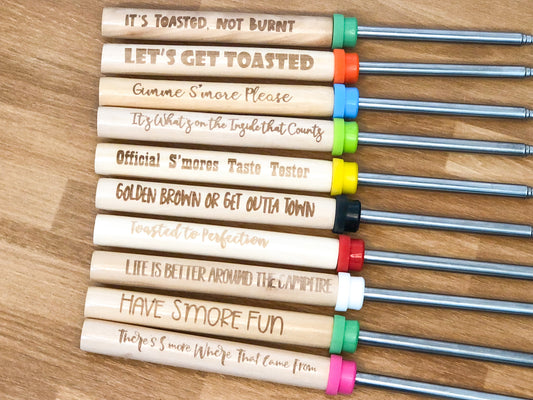 IT'S TOASTED, NOT BURNT
LET'S GET TOASTED
Gimme S'more Please
It's What's on the Inside that Counts
Official S'mores Taste Tester
GOLDEN BROWN OR GET OUTTA TOWN
Toasted to Perfection
LIFE IS BETTER AROUND THE CAMPFIRE
HAVE S'MORE FUN
There's S'more Where That Came From